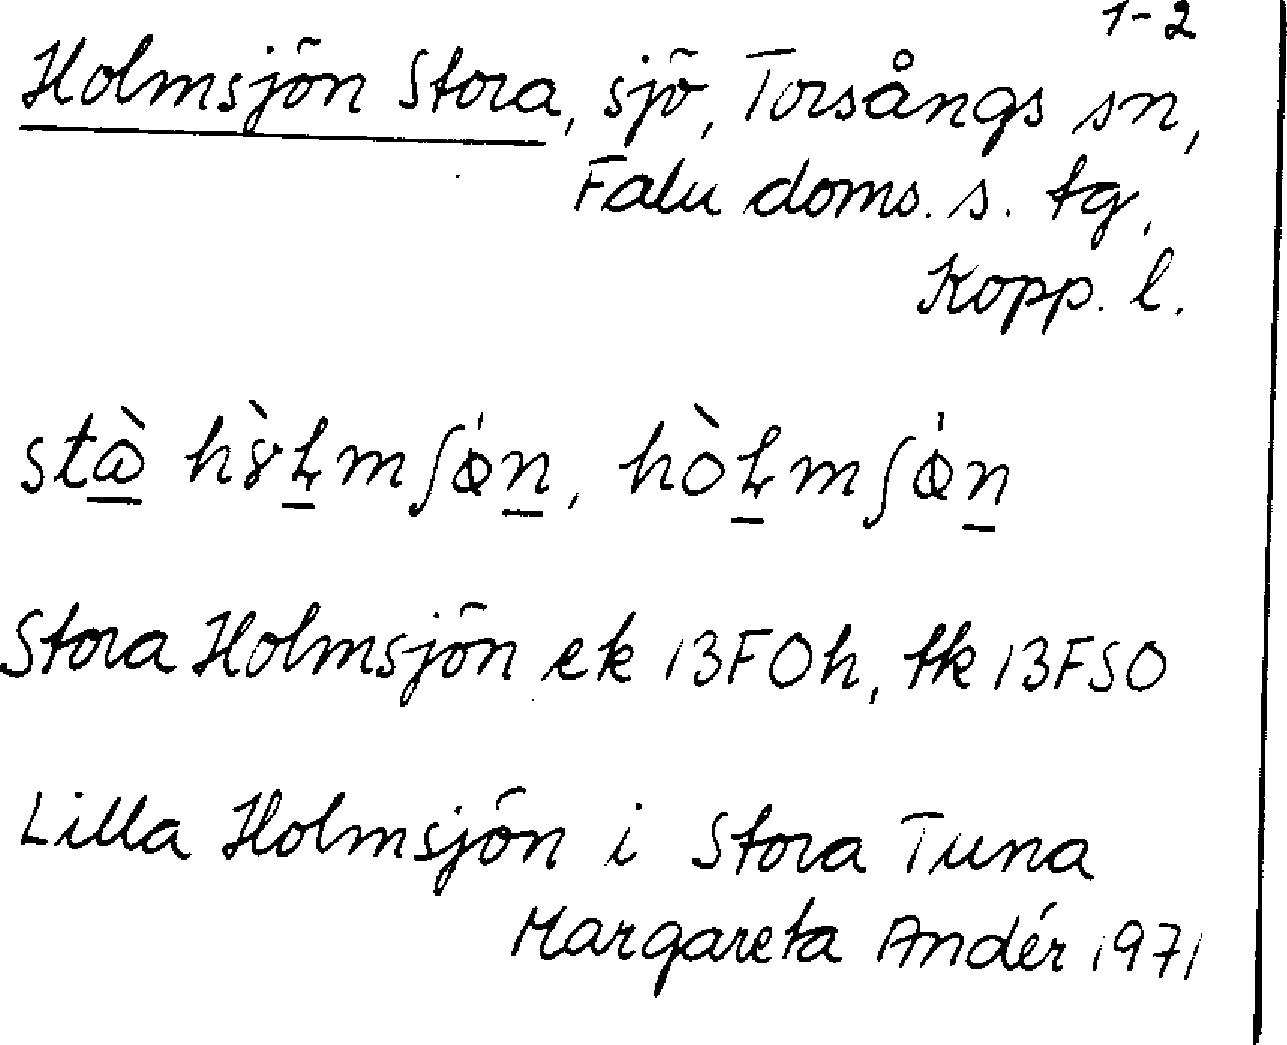 1-2
Holmsjön Stora, sjö, Torsångs sn,
Falu doms. s. tg,
Kopp. l.
Stora Holmsjön ek 13F0h, tk 13FSO
Lilla Holmsjön i Stora Tuna
Margareta Andér 1971